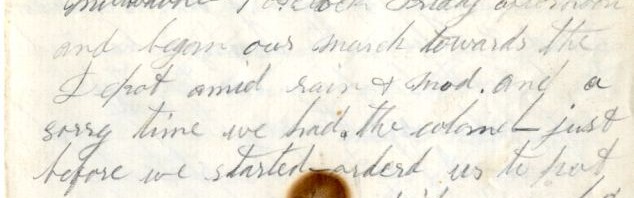 Milwaukee 1 O Clock Friday afternoon
and began our march towards the
D pot amid rain & mod. and a
sorry time we had. the colonel just
before we started orderd us to pot